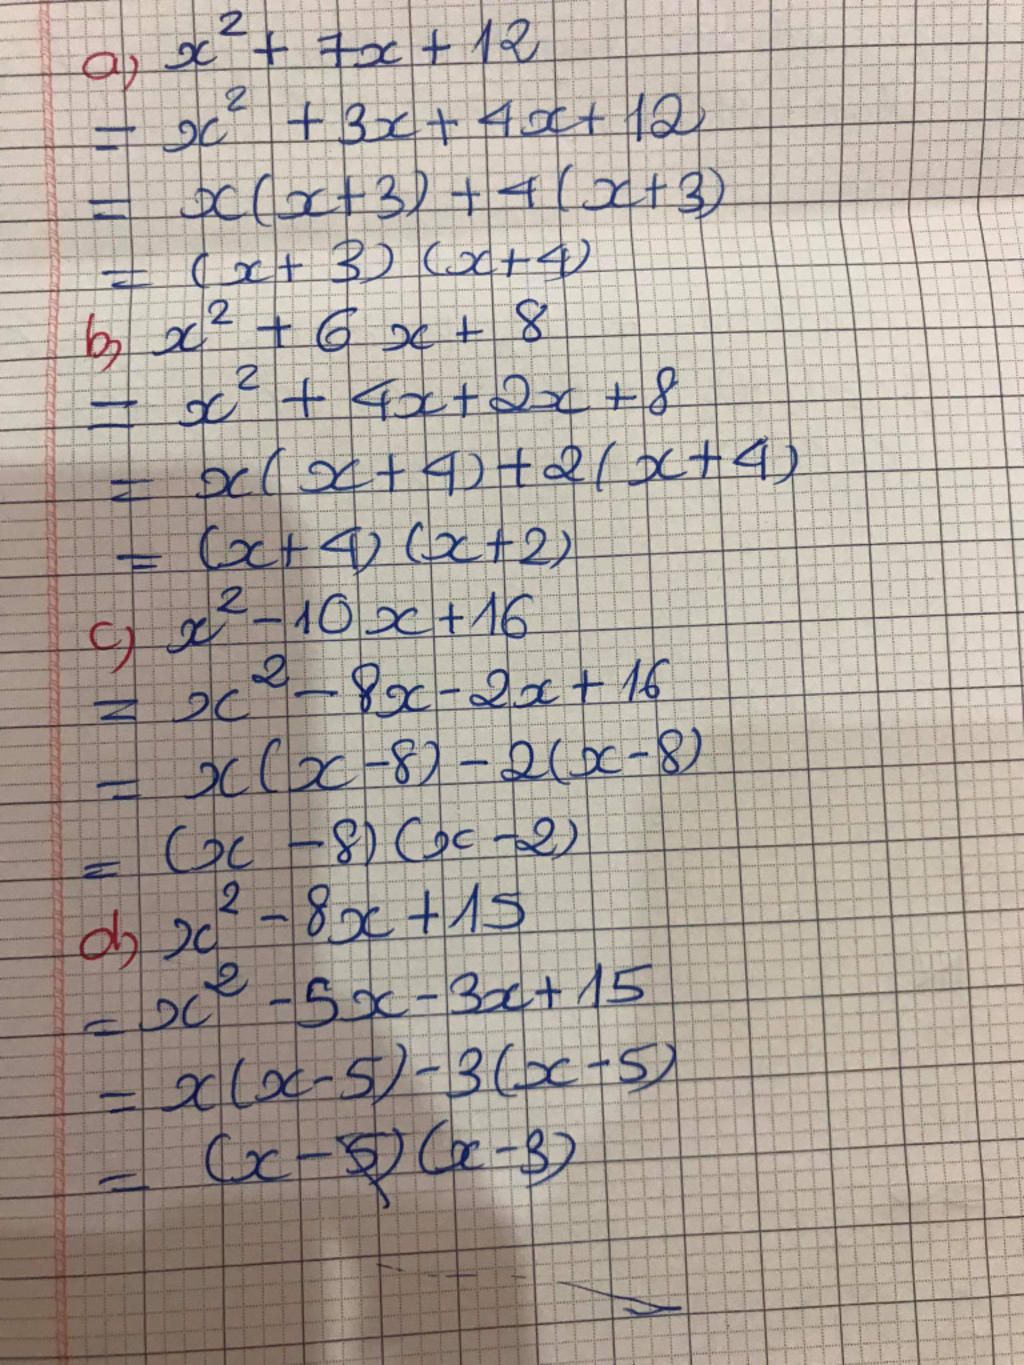 a) x² + 7x + 12
= x² + 3x + 4x + 12
= x(x+3) + 4(x+3)
= (x+3)(x+4)
b) x² + 6x + 8
= x² + 4x + 2x + 8
= x(x+4) + 2(x+4)
= (x+4)(x+2)
c) x² - 10x + 16
= x² - 8x - 2x + 16
= x(x-8) - 2(x-8)
= (x-8)(x-2)
d) x² - 8x + 15
= x² - 5x - 3x + 15
= x(x-5) - 3(x-5)
= (x-5)(x-3)